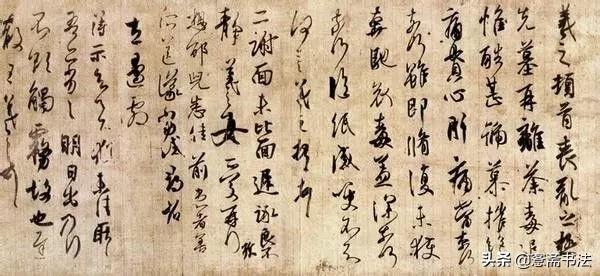 羲之頓首喪亂之極
先墓再離荼毒追
惟酷甚號慕摧絕
痛貫心肝痛當奈何
奈何雖即脩復未獲
奔馳哀毒益深奈何
奈何臨紙感哽不知
何言羲之頓首頓首
二謝面未比面遲詠良不
靜羲之女愛再拜
想邰兒悉佳前患者善
所送議當試尋省
左邊劇
得示知足下猶未佳耿耿
吾亦劣劣明日出乃行
不欲觸霧故也遲
散王羲之頓首
头条 @愙斋书法